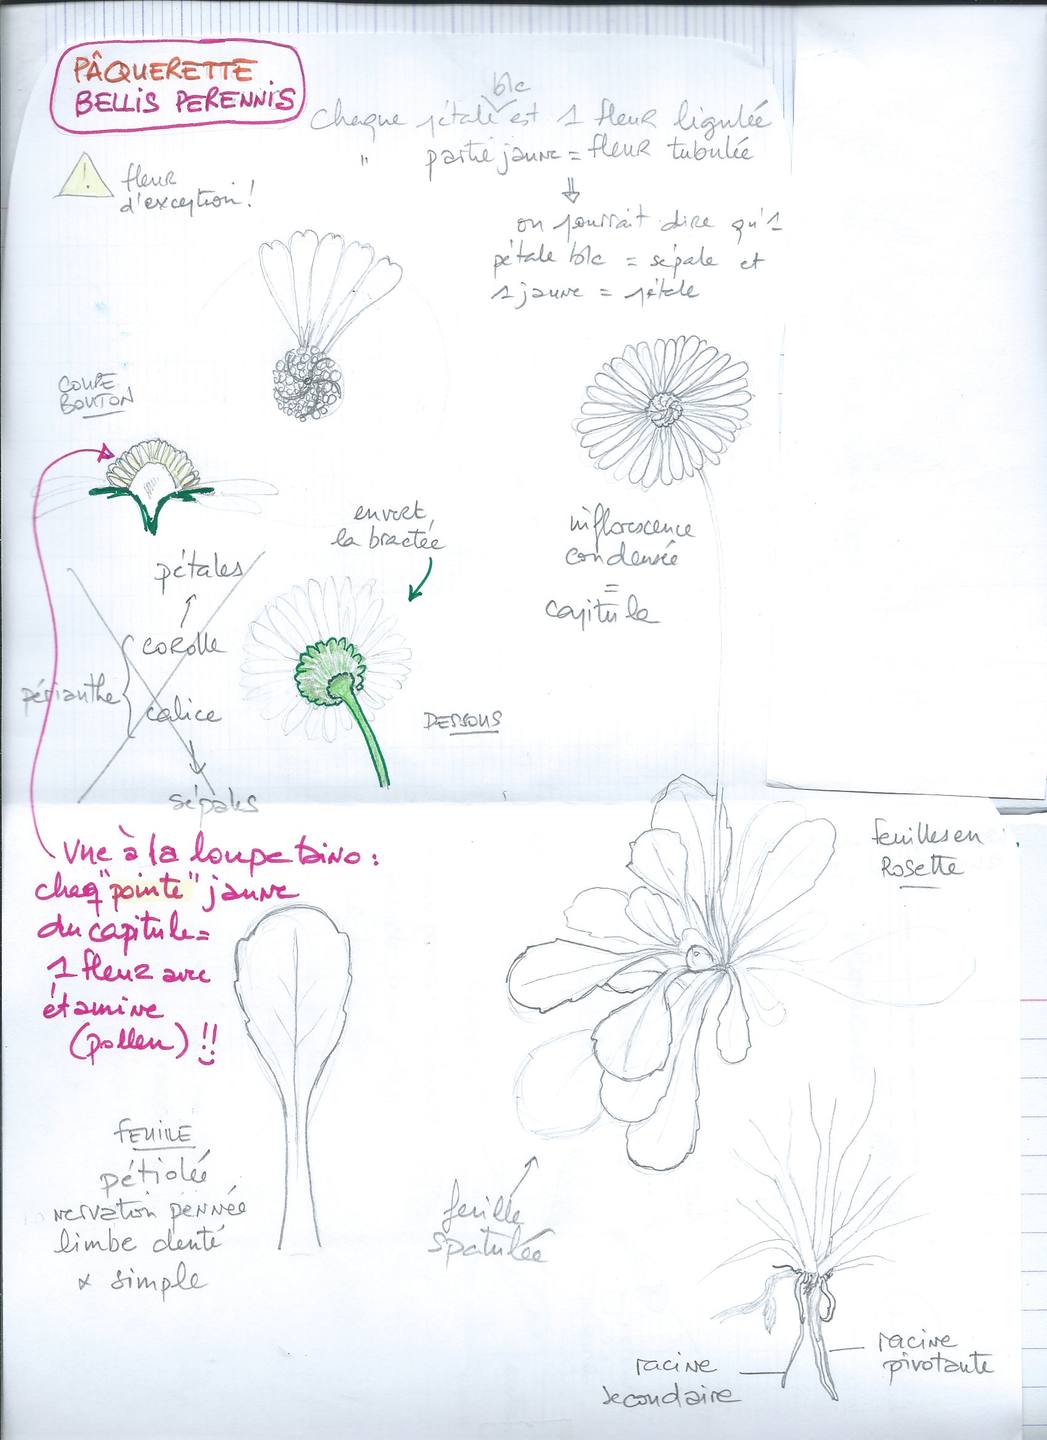 PÂQUERETTE
BELLIS PERENNIS
blc
Chaque pétale est 1 fleur ligulée
" partie jaune = fleur tubulée
⇓
on pourrait dire qu'1
pétale blc = sépale et
1 jaune = pétale
!
fleur
d'exception !
COUPE
BOUTON
en vert
la bractée
inflorescence
condensée
=
capitule
pétales
corolle
périanthe
calice
sépales
DESSOUS
Vue à la loupe bino :
chaq "pointe" jaune
du capitule =
1 fleur avec
étamine
(pollen) !!
feuilles en
Rosette
feuille
pétiolée
nervation pennée
limbe denté
& simple
feuille
spatulée
racine
pivotante
racine
secondaire